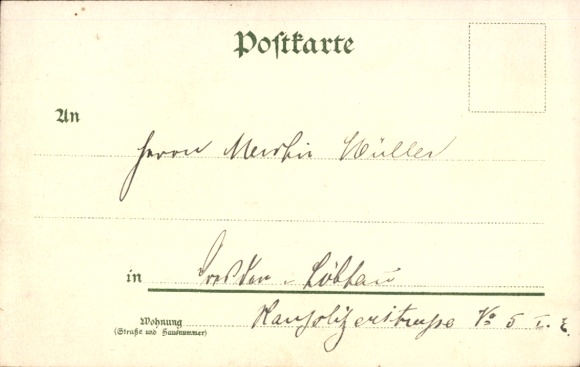 Postkarte
An
Herrn Müller
in Dresden - Löbtau
Wohnung
(Straße und Hausnummer)
No 5 I.